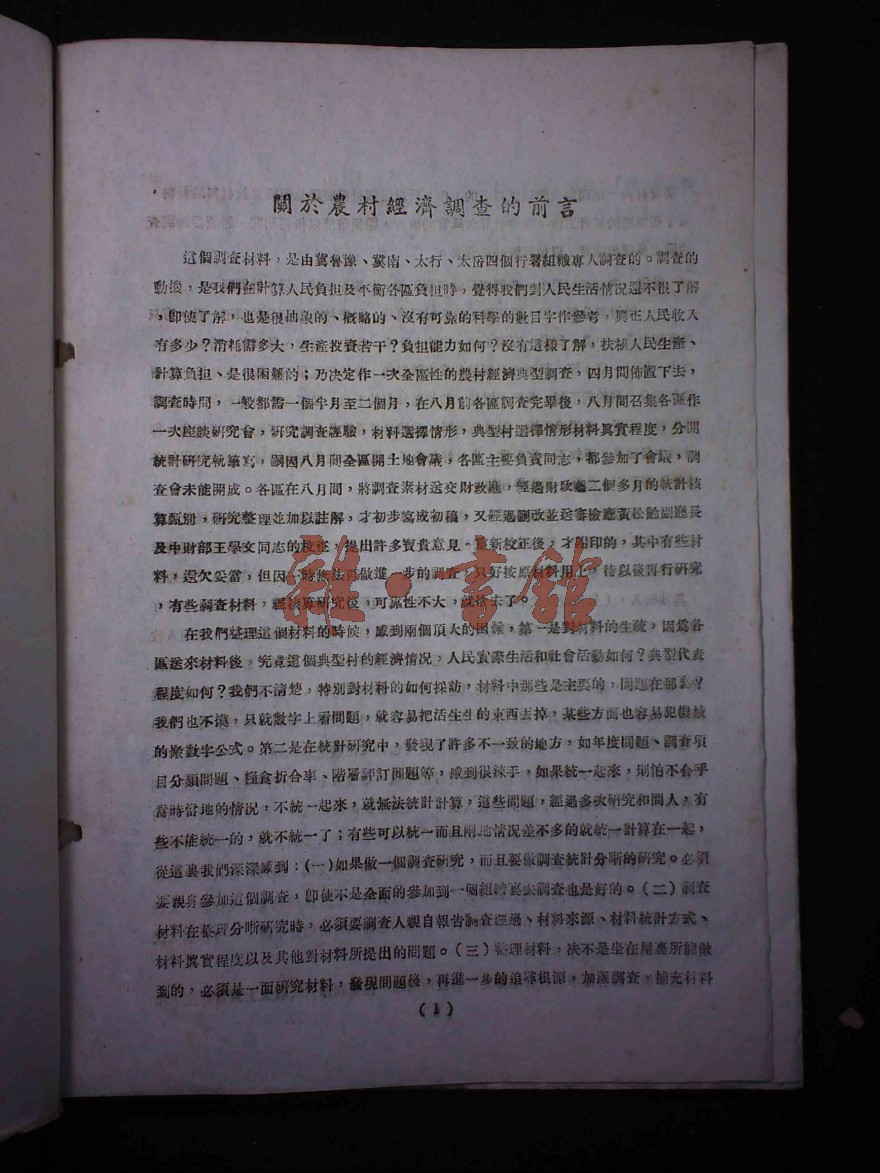 關於農村經濟調查的前言
這個調查材料，是由冀魯豫、冀南、太行、太岳四個行署組織專人調查的。調查的
動機，是我們在計算人民負担及平衡各區負担時，覺得我們對人民生活情况還不很了解
，即使了解，也是很抽象的、概略的、沒有可靠的科學的數目字作參考，眞正人民收入
有多少？消耗需多大，生產投資若干？負担能力如何？沒有這樣了解，扶植人民生產、
計算負担、是很困難的；乃决定作一次全區性的農村經濟典型調查，四月間佈置下去，
調查時間，一般都需一個半月至二個月，在八月前各區調查完畢後，八月間召集各區作
一次座談研究會，研究調查經驗，材料選擇情形，典型村選擇情形材料眞實程度，分開
統計研究執筆寫，嗣因八月間全區開土地會議，各區主要負責同志，都參加了會議，調
查會未能開成。各區在八月間，將調查素材送交財政廳，經過財政廳二個多月的統計核
算甄別，研究整理並加以註解，才初步寫成初稿，又經過删改並送審檢廳黃松齡副廳長
及中財部王學文同志的校正，提出許多寶貴意見，重新校正後，才附印的，其中有些材
料，還欠妥當，但因一時無法再做進一步的調查，只好按原材料用上，待以後再行研究
，有些調查材料，經核算研究後，可靠性不大，就捨去了。
在我們整理這個材料的時候，感到兩個頂大的困難，第一是對材料的生疏，因爲各
區送來材料後，究竟這個典型村的經濟情况，人民實際生活和社會活動如何？典型代表
程度如何？我們不清楚，特別對材料的如何採訪，材料中那些是主要的，問題在那裏？
我們也不摸，只就數字上看問題，就容易把活生生的東西去掉，某些方面也容易犯機械
的搬数字公式。第二是在統計研究中，發現了許多不一致的地方，如年度問題、調查項
目分類問題、糧食折合率、階層評訂問題等，感到很辣手，如果統一起來，則怕不合乎
當時當地的情况，不統一起來，就無法統計計算，這些問題，經過多次研究和問人，有
些不能統一的，就不統一了；有些可以統一而且兩地情况差不多的就統一計算在一起，
從這裏我們深深感到：(一)如果做一個調查研究，而且要做調查統計分晰的研究。必須
要親身參加這個調查，即使不是全面的參加到一個組灣裏去調查也是好的。（二）調查
材料在整理分晰研究時，必須要調查人親自報告調查經過、材料來源、材料統計方式、
材料眞實程度以及其他對材料所提出的問題。（三）整理材料，决不是坐在屋裏所能做
到的，必須是一面研究材料，發現問題後，再進一步的追尋根源，加深調查，補充材料
（1）
雜·書館